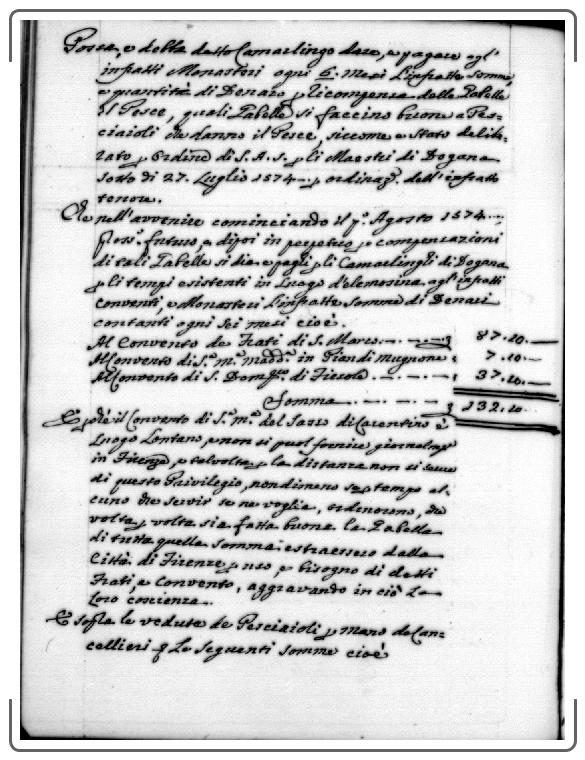 Possa, e debba detto Camarlingo dare, e pagare agl'
infratti Monasteri ogni 6. Mesi l'infratte somme,
e quantità di Denaro p ricompensa delle Gabelle
il Pesce, quali Gabelle si faccino buone a Pes-
ciaioli che danno il Pesce, siccome è stato delibe-
rato p ordine di S. A. S. p li Maestri di Dogana
sotto di 27. Luglio 1574 p ordinaz.e dell'infratto
tenore.
Che nell'avvenire cominciando il p.o Agosto 1574
pross.o futuro, e dipoi in perpetuo p compensazioni
di tali Gabelle si dia e paghi p li Camarlinghi di Dogana
p li tempi esistenti in luogo d'elemosina agl'infratti
Conventi, e Monasteri l'infratte somme di Denari
contanti ogni sei mesi cioè.
Al Convento de Frati di S. Marco 87.10.—
Al Convento di S.a M.a Madd.a in Pian di Mugnone 7.10.—
Al Convento di S. Dom.co di Fiesole 37.10.—
Somma 132.10.—
E p che il Convento di S.a M.a del Sasso di Casentino è
Luogo Lontano, e non si puol fornire giornalmte
in Firenze, e talvolta p la distanza non si serve
di questo Privilegio, nondimeno se p tempo al-
cuno che servir se ne voglia, ordinorono, che
volta p volta sia fatta buona la Gabella
di tutta quella somma estraessero dalla
Città di Firenze p uso, e bisogno di detti
Frati, e Convento, aggravando in ciò la
loro coscienza.
E sopra le vedute de Pesciaioli p mano de Can-
cellieri p le seguenti somme cioè